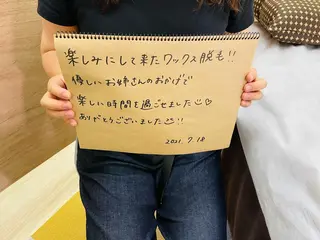 楽しみにして来たワックス脱毛!!
優しいお姉さんのおかげで
楽しい時間を過ごせました♡
ありがとうございました!!
2021.7.18